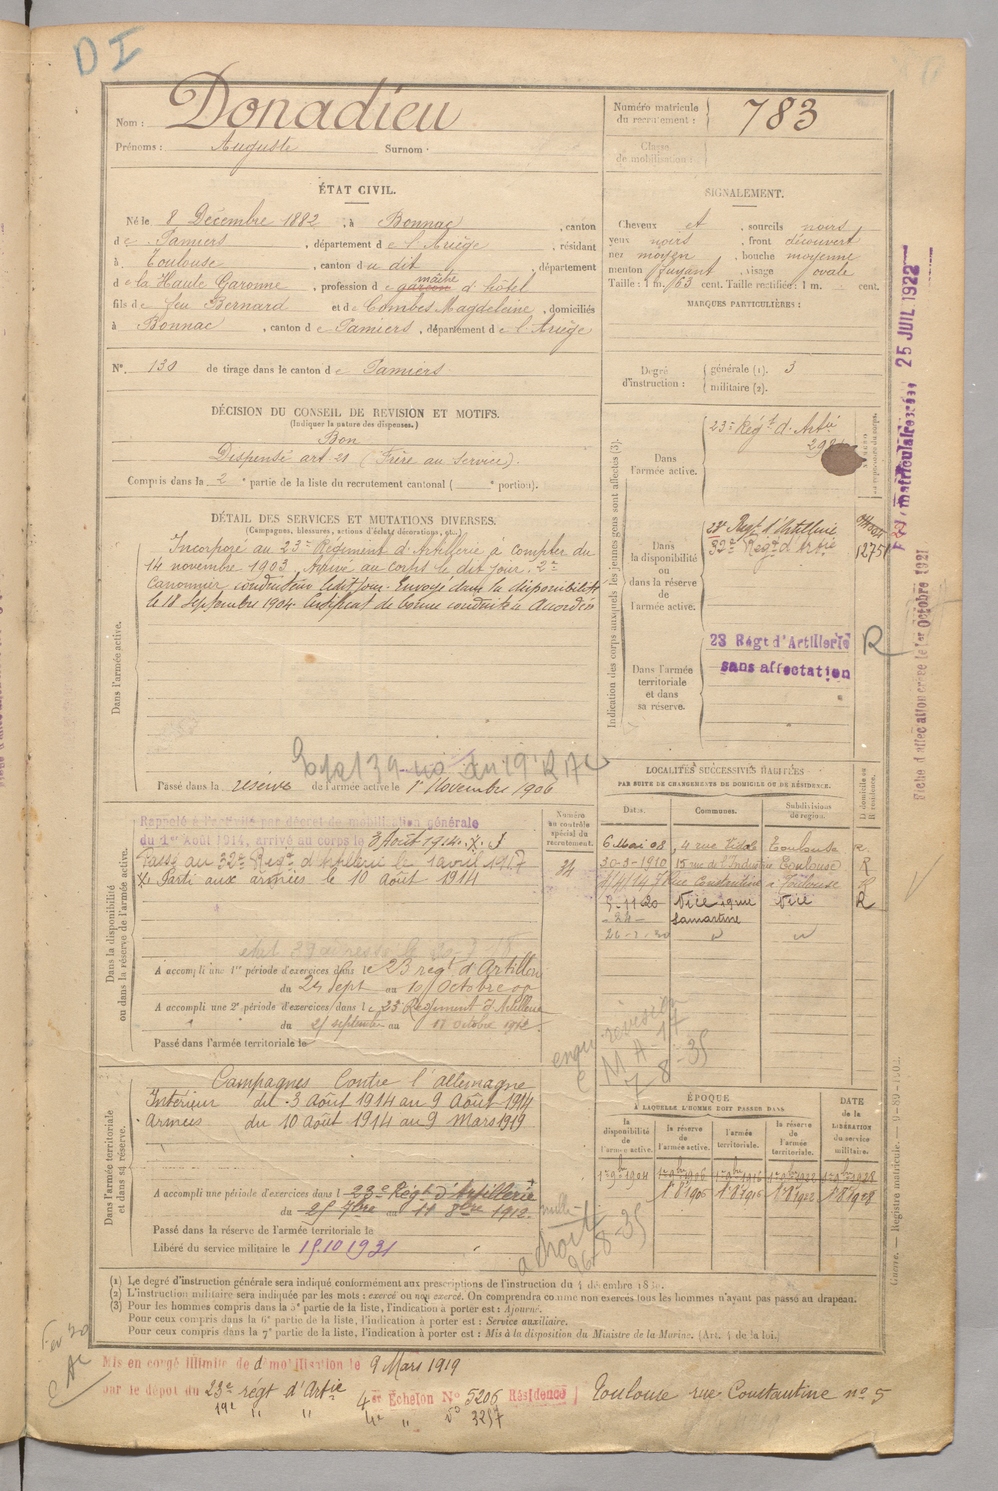 D I
Nom : Donadieu
Prénoms : Auguste Surnom
Numéro matricule du recrutement : 783
Classe de mobilisation :
ÉTAT CIVIL.
Né le 8 Décembre 1882, à Bonnac, canton
de Pamiers, département de l'Ariège, résidant
à Toulouse, canton du dit, département
de la Haute Garonne, profession de garçon maître d'hôtel
fils de feu Bernard et de Combes Magdeleine, domiciliés
à Bonnac, canton de Pamiers, département de l'Ariège
N° 130 de tirage dans le canton de Pamiers
SIGNALEMENT.
Cheveux et, sourcils noirs
yeux noirs, front découvert
nez moyen, bouche moyenne
menton fuyant, visage ovale
Taille : 1 m. 63 cent. Taille rectifiée : 1 m. cent.
MARQUES PARTICULIÈRES :
Degré d'instruction : générale (1). 3
militaire (2).
DÉCISION DU CONSEIL DE REVISION ET MOTIFS.
(Indiquer la nature des dispenses.)
Bon
Dispensé art. 21 (Frère au Service).
Compris dans la 2e partie de la liste du recrutement cantonal ( e portion).
DÉTAIL DES SERVICES ET MUTATIONS DIVERSES.
(Campagnes, blessures, actions d'éclat, décorations, etc.)
Dans l'armée active.
Incorporé au 23e Régiment d'Artillerie à compter du
14 novembre 1903, arrivé au corps le dit jour. 2e
Canonnier conducteur ledit jour. Envoyé dans la disponibilité
le 18 Septembre 1904. Certificat de bonne conduite Accordé
Passé dans la réserve de l'armée active le 1er Novembre 1906
Indication des corps auxquels les jeunes gens sont affectés (3).
Dans l'armée active.
23e Régt d'Artie
Dans la disponibilité ou dans la réserve de l'armée active.
23e Régt d'Artillerie
32e Régt d'Artie
1275
Dans l'armée territoriale et dans sa réserve.
23 Régt d'Artillerie
sans affectation
R
Fiche matriculaire créée 25 JUIL 1922
Fiche d'affectation créée le 1er Octobre 1921
Dans la disponibilité ou dans la réserve de l'armée active.
Rappelé à l'activité par décret de mobilisation générale
du 1er Août 1914, arrivé au corps le 3 Août 1914.
Passé au 32e Régt d'Artillerie le 1 avril 1917
Parti aux armées le 10 Août 1914
A accompli une 1re période d'exercices dans le 23 régt d'Artillerie
du 24 Sept au 10 Octobre 09
A accompli une 2e période d'exercices dans le 23 Régiment d'Artillerie
du 25 septembre au 11 octobre 1912
Passé dans l'armée territoriale le
Numéro au contrôle spécial du recrutement.
LOCALITÉS SUCCESSIVES HABITÉES
PAR SUITE DE CHANGEMENTS DE DOMICILE OU DE RÉSIDENCE.
Dates. Communes. Subdivisions de région. D domicile ou R résidence.
6 Mai 08, 4 rue Vidal Toulouse R.
30-3-1910 15 rue de l'Industrie Toulouse R
rue Constantine Toulouse
Nice Nice R
Lamartine
enqu. revision
7-8-35
Dans l'armée territoriale et dans sa réserve.
Campagnes Contre l'allemagne
Intérieur du 3 Août 1914 au 9 Août 1914
Armées du 10 Août 1914 au 9 Mars 1919
A accompli une période d'exercices dans l 23e Régt d'Artillerie
du 25 7bre au 11 8bre 1912.
Passé dans la réserve de l'armée territoriale le
Libéré du service militaire le 15.10 1931
ÉPOQUE
À LAQUELLE L'HOMME DOIT PASSER DANS
la disponibilité de l'armée active. la réserve de l'armée active. l'armée territoriale. la réserve de l'armée territoriale. DATE de la LIBÉRATION du service militaire.
1er 9bre 1904
(1) Le degré d'instruction générale sera indiqué conformément aux prescriptions de l'instruction du 4 décembre
(2) L'instruction militaire sera indiquée par les mots : exercé ou non exercé. On comprendra comme non exercés tous les hommes n'ayant pas passé au drapeau.
(3) Pour les hommes compris dans la 5e partie de la liste, l'indication à porter est : Ajourné.
Pour ceux compris dans la 6e partie de la liste, l'indication à porter est : Service auxiliaire.
Pour ceux compris dans la 7e partie de la liste, l'indication à porter est : Mis à la disposition du Ministre de la Marine. (Art. 4 de la loi.)
Mis en congé illimité de démobilisation le 9 Mars 1919
par le dépot du 23e régt d'Artie 4er Echelon N° 5206 Résidence Toulouse rue Constantine n° 5
19e " " 4e " n° 3257